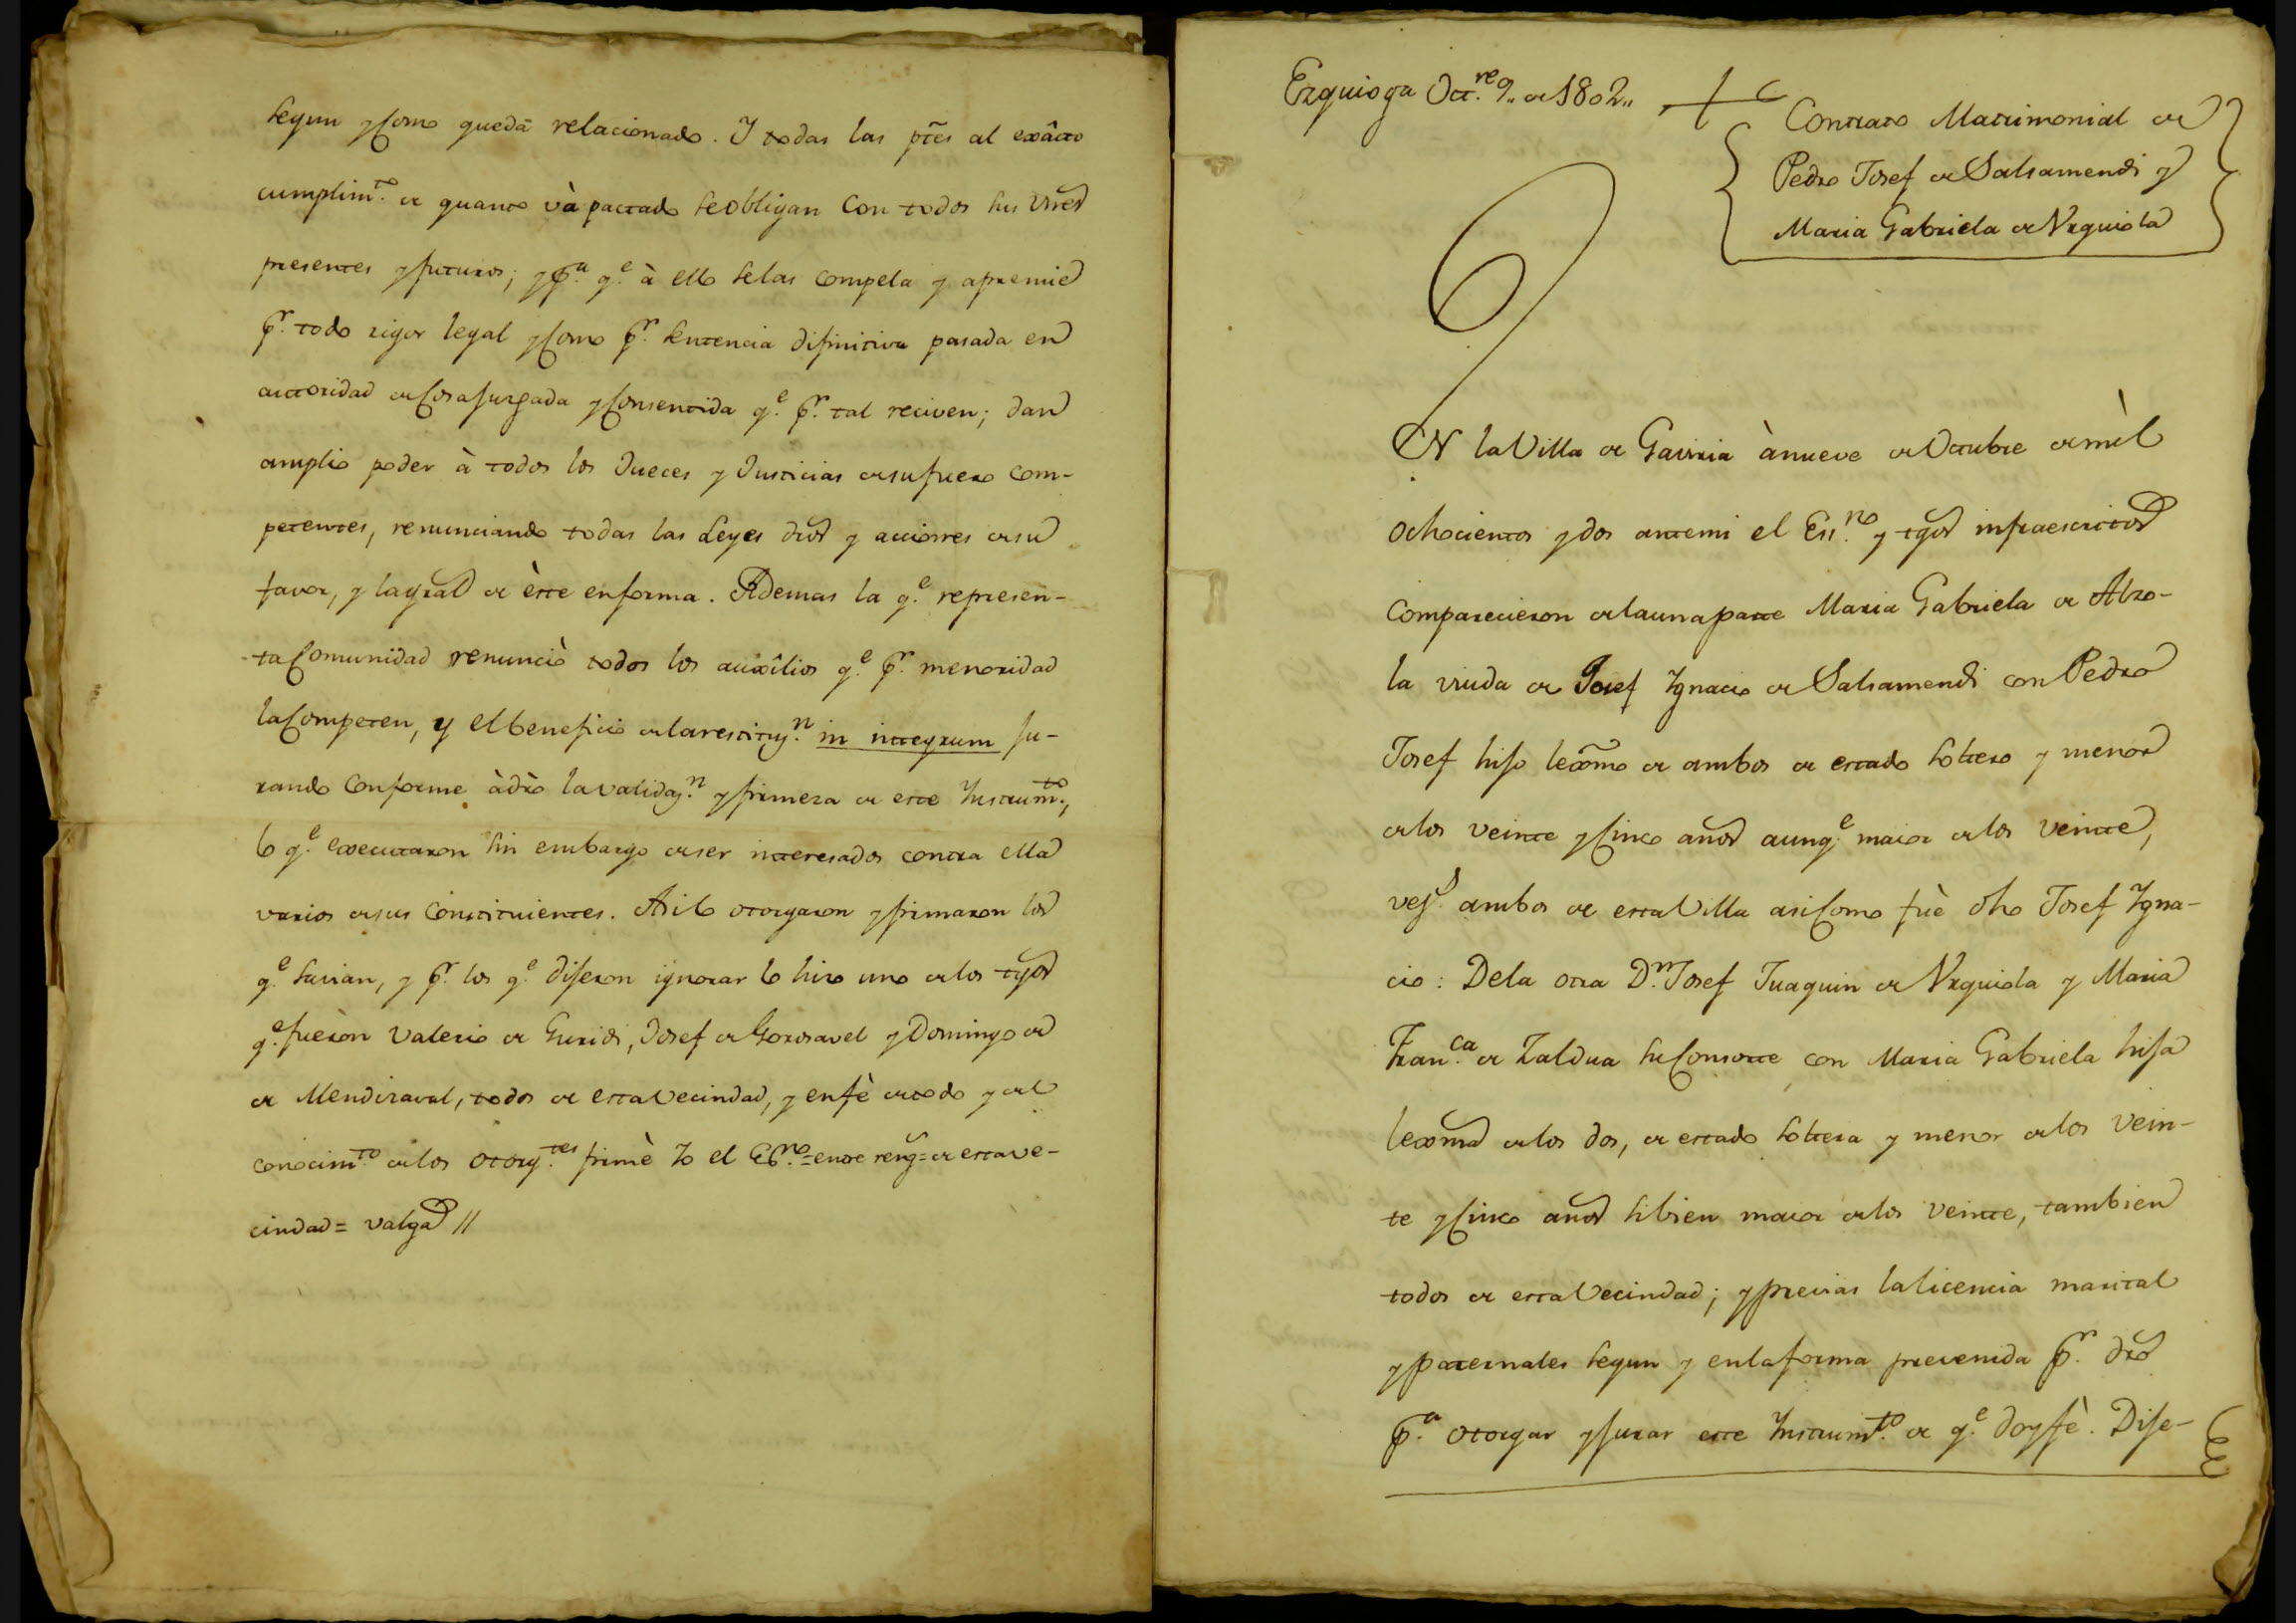 segun y como queda relacionado. Y todas las ptẽs al exâcto
cumplim.to de quanto và pactado se obligan con todos sus vnes
presentes y futuros; y p.a q.e à ello se las compela y apremie
p.r todo rigor legal y como p.r sentencia difinitiva pasada en
autoridad de cosa jurgada y consentida q.e p.r tal reciven; dan
amplio poder à todos los Jueces y Justicias de su fuero com-
petentes, renunciando todas las Leyes dros y acciones de su
favor, y la gral de èste en forma. Ademas la q.e represen-
ta Comunidad renunciò todos los auxîlios q.e p.r menoridad
la competen, y el beneficio de la restituz.n in integrum ju-
rando conforme à dro la validaz.n y firmeza de este Instrum.to,
lo q.e executaron sin embargo de ser interesados contra ella
varios de sus constituientes. Asi lo otorgaron y firmaron los
q.e savian, y p.r los q.e dijeron ignorar lo hizo uno de los tgos
q.e fueron Valerio de Guridi, Josef de Gorosavel y Domingo de
de Mendizaval, todos de esta vecindad, y en fè de todo y del
conocim.to de los otorg.tes firmè Yo el Es.no = entre reng = de esta ve-
cindad = valga //
Ezquioga Oct.re 9,, de 1802,,
Contrato Matrimonial de
Pedro Josef de Salsamendi y
Maria Gabriela de Vrquiola
EN la Villa de Gaviria à nueve de Octubre de mìl
ochocientos y dos ante mi el Ess.no y tgos infraescritos
comparecieron de la una parte Maria Gabriela de Alzo-
la viuda de Josef Ygnacio de Salsamendi con Pedro
Josef hijo lexmo de ambos de estado soltero y menor
de los veinte y cinco años aunq.e maior de los veinte,
vez.s ambos de esta Villa asi como fuè dho Josef Ygna-
cio: De la otra D.n Josef Juaquin de Vrquiola y Maria
Fran.ca de Zaldua su consorte con Maria Gabriela hija
lexma de los dos, de estado soltera y menor de los vein-
te y cinco años si bien maior de los veinte, tambien
todos de esta vecindad; y previas la licencia marital
y paternales segun y en la forma prevenida p.r dro
p.a otorgar y jurar este Instrum.to de q.e doy fè. Dije-